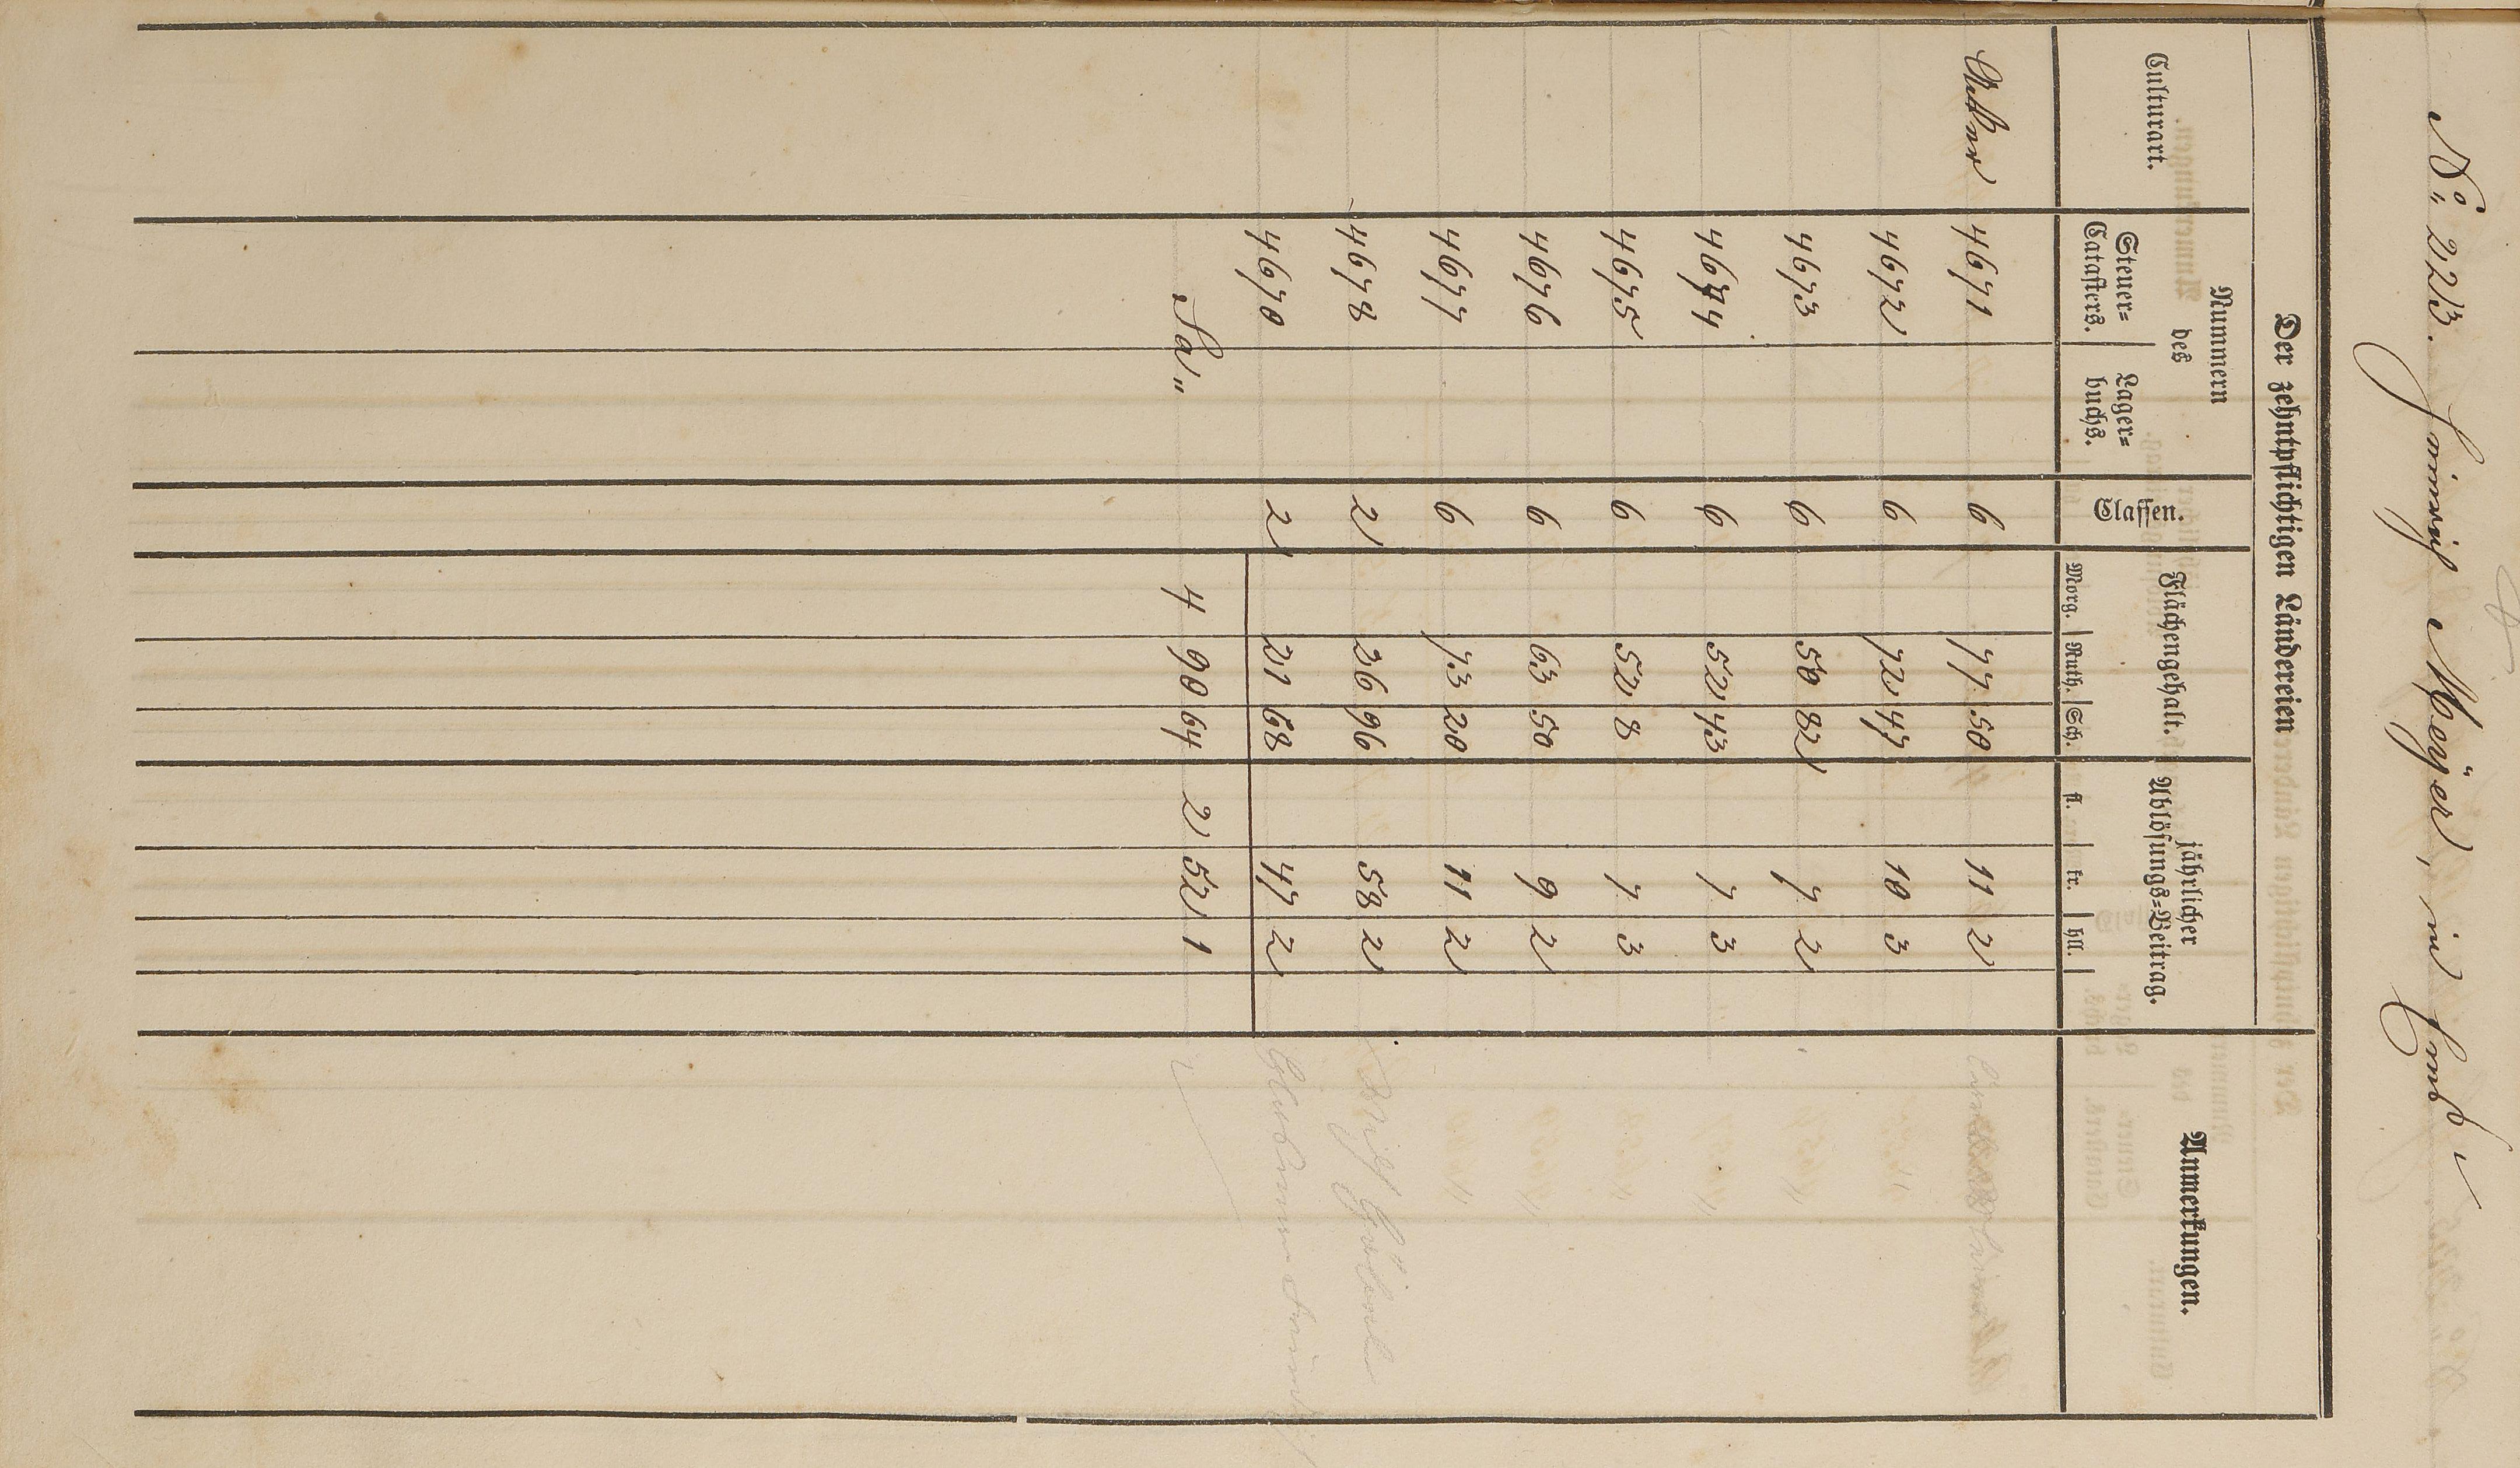 No. 223.
Heinrich Meyer, in Camb
Der zehntpflichtigen Ländereien
Culturart.
Nummern des
Steuer=Catasters.
Lager=buchs.
Classen.
Flächengehalt.
Morg. Ruth. Sch.
jährlicher Ablösungs=Beitrag.
fl. kr. hll.
Anmerkungen.
4671 6 77 50 11 2
4672 6 72 47 10 3
4673 6 50 82 7 2
4674 6 52 43 7 3
4675 6 52 8 7 3
4676 6 63 50 9 2
4677 6 73 20 11 2
4678 2 26 96 58 2
4670 2 21 68 47 2
Sa" 4 90 64 2 52 1